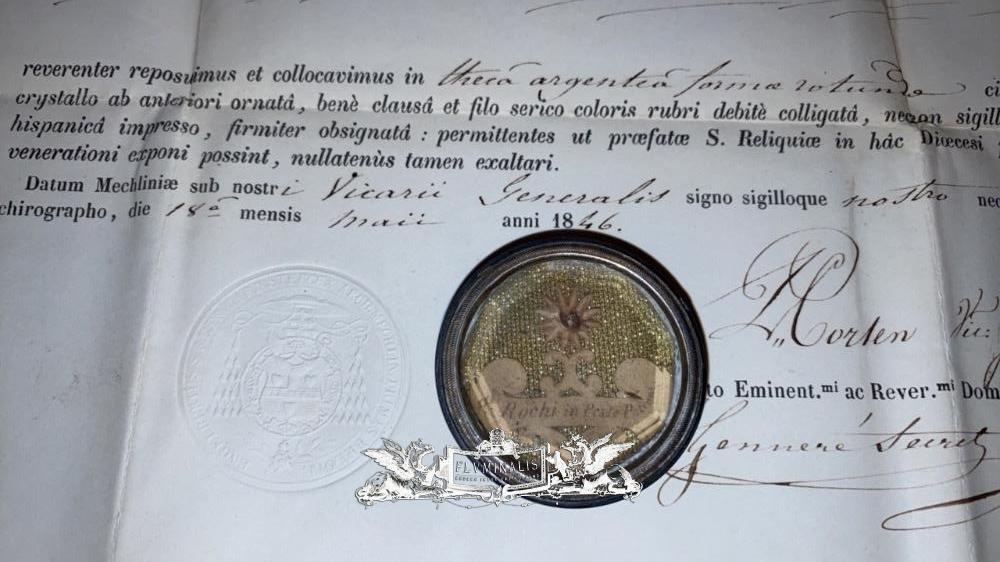 reverenter reposuimus et collocavimus in thecâ argenteâ formæ rotundæ
crystallo ab anteriori ornatâ, benè clausâ et filo serico coloris rubri debitè colligatâ, necnon sigill
hispanicâ impresso, firmiter obsignatâ : permittentes ut præfatæ S. Reliquiæ in hâc Diœcesi
venerationi exponi possint, nullatenùs tamen exaltari.
Datum Mechliniæ sub nostri Vicarii Generalis signo sigilloque nostro nec
chirographo, die 18â mensis maii anni 1846.
Rochi in Peste P.
to Eminent.mi ac Rever.mi Dom
FLUMINALIS